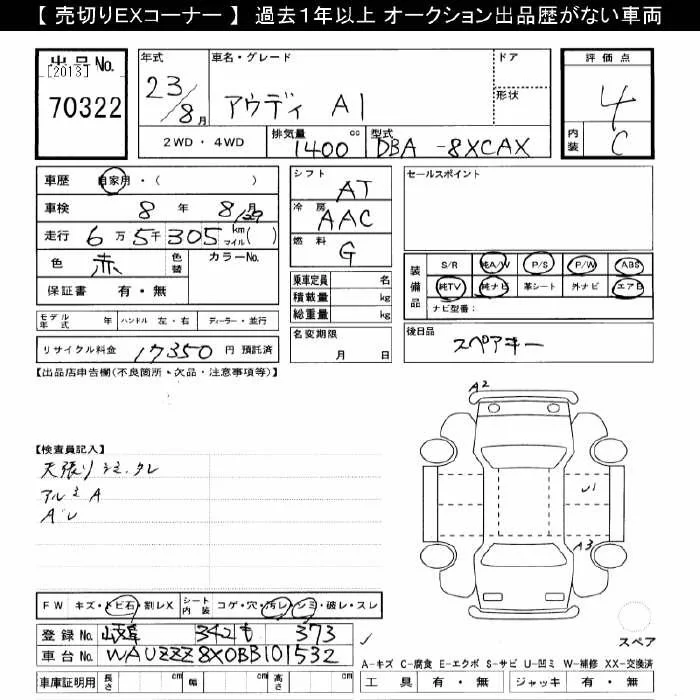 【 売切りEXコーナー 】 過去1年以上 オークション出品歴がない車両
出品No.
[2013]
70322
年式
23/8月
車名・グレード
アウディ A1
ドア
形状
2WD・4WD
排気量 1400 cc
型式 DBA-8XCAX
評価点
4
内装 C
車歴 自家用・( )
車検 8年 8/29月
走行 6万5千305 km マイル( )
色 赤 色替 カラーNo.
保証書 有・無
シフト AT
冷房 AAC
燃料 G
乗車定員 名
積載量 kg
総重量 kg
セールスポイント
装備品 S/R 純A/W P/S P/W ABS
純TV 純ナビ 革シート 外ナビ エアB
ナビ型番:
モデル年式 年 ハンドル 左・右 ディーラー・並行
リサイクル料金 17350 円 預託済
名変期限 月 日
後日品 スペアキー
【出品店申告欄(不良箇所・欠品・注意事項等)】
【検査員記入】
天張りシミ、タレ
アルミA
A2
U1
A3
FW キズ・トビ石・割レX シート内装 コゲ・穴・汚レ・シミ・破レ・スレ
登録No. 岐阜 342も 373
車台No. WAUZZZ8X0BB101532
スペア
A-キズ C-腐食 E-エクボ S-サビ U-凹ミ W-補修 XX-交換済
車庫証明用 長さ cm 幅 cm 高さ cm
工具 有・無 ジャッキ 有・無